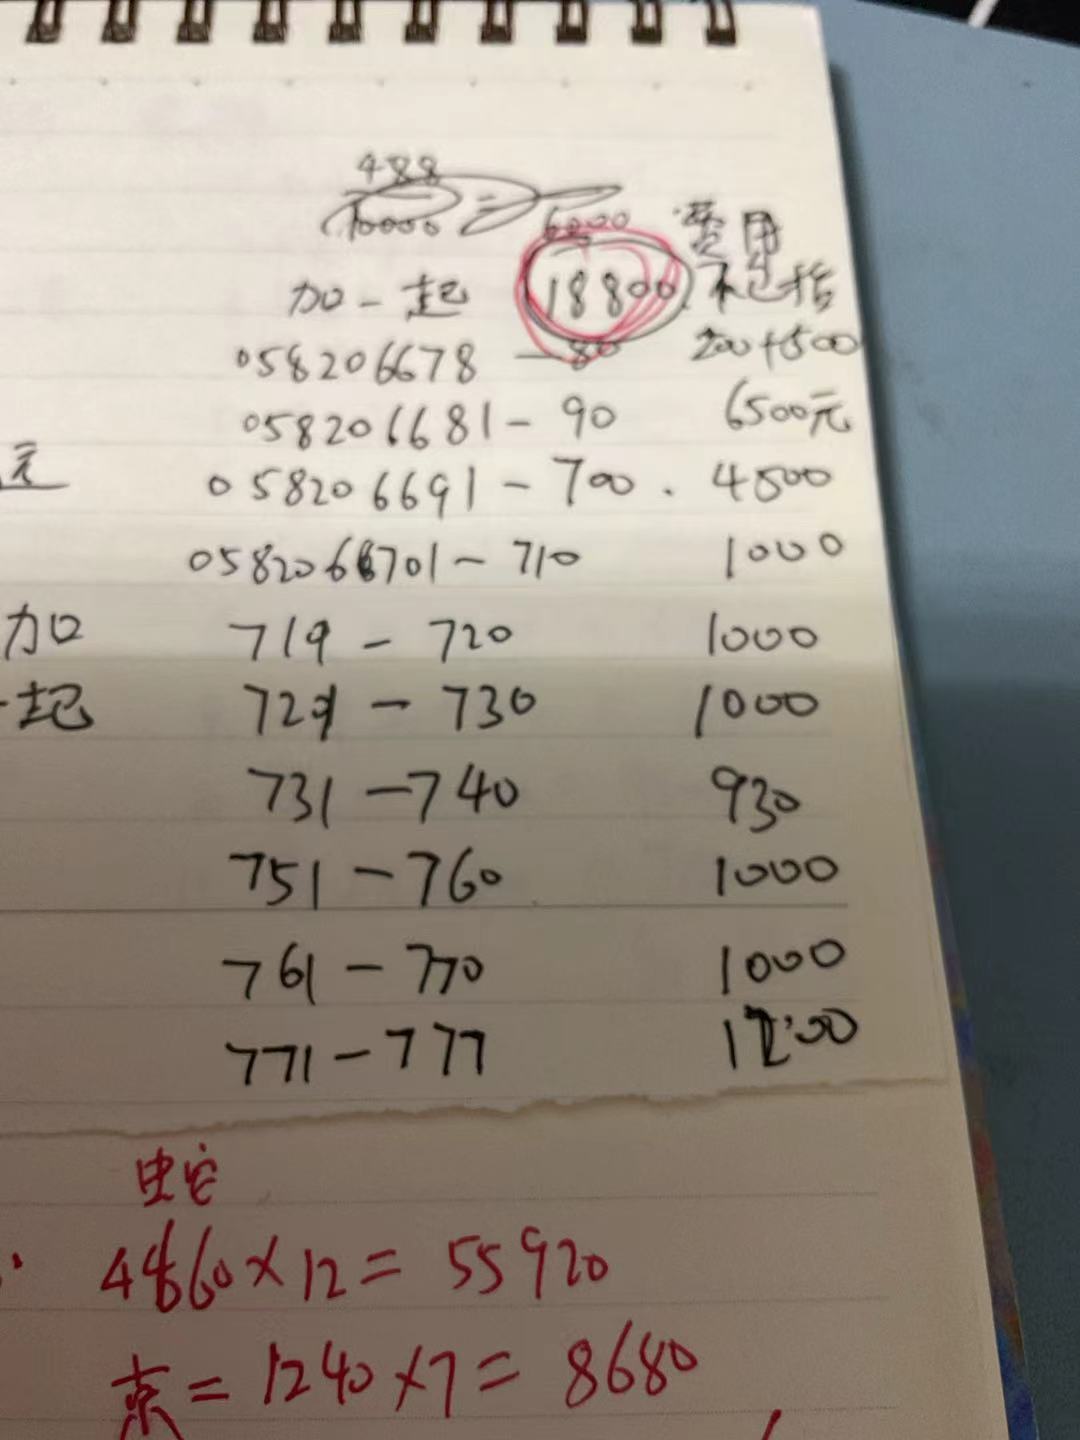 488
10000 =
6000 费用
加一起 18800 不包括
058206678 - 80 200+500
058206681 - 90 6500元
元 058206691 - 700 . 4800
0582066701 - 710 1000
加 719 - 720 1000
一起 721 - 730 1000
731 - 740 930
751 - 760 1000
761 - 770 1000
771 - 777 1200
蛇
4660×12 = 55920
京 = 1240×7 = 8680